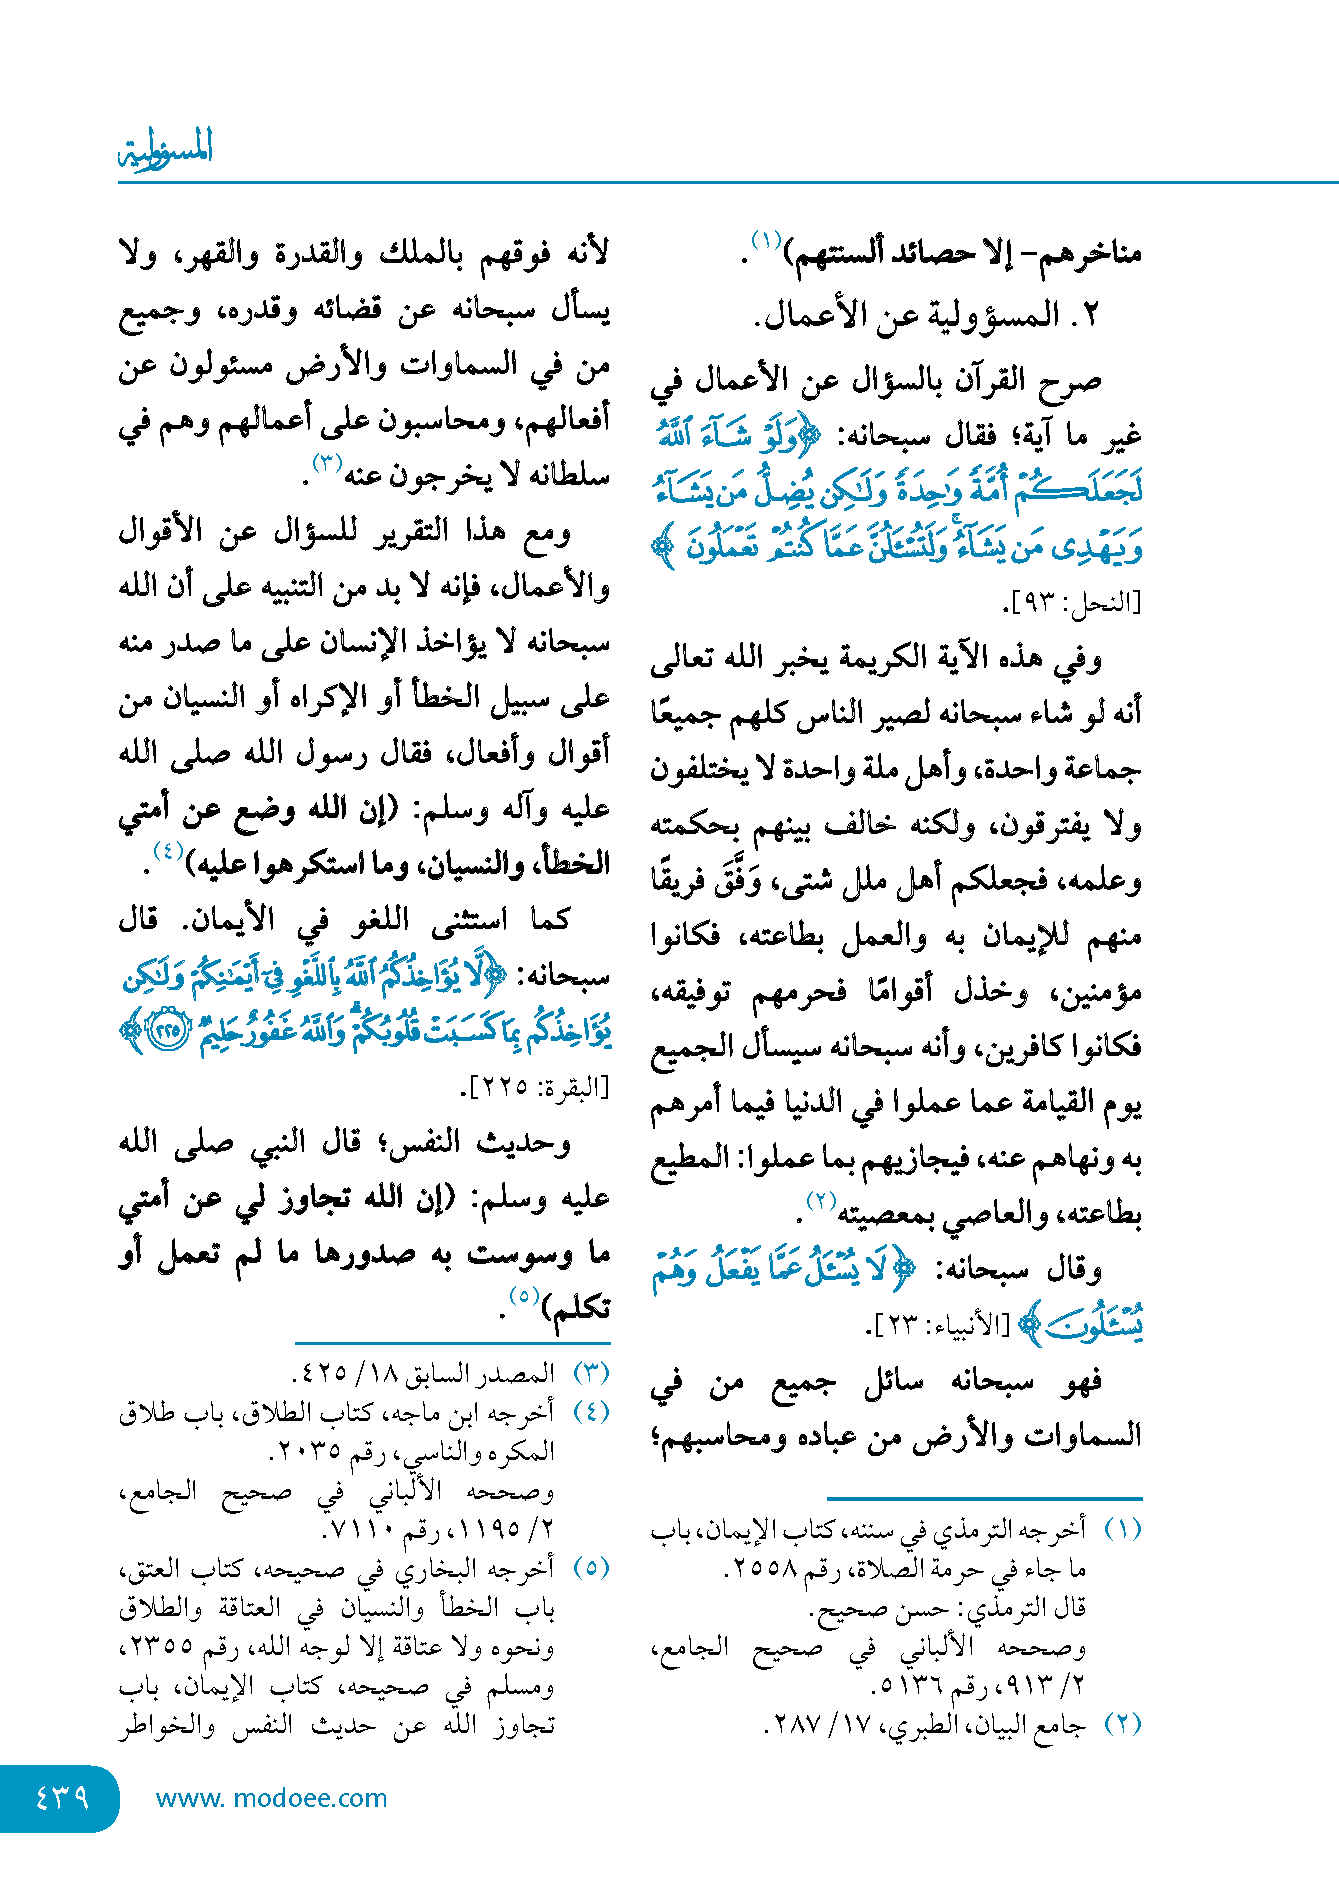 المسؤولية
مناخرهم- إلا حصائد ألسنتهم)(١).
٢. المسؤولية عن الأعمال.
صرح القرآن بالسؤال عن الأعمال في
غير ما آية؛ فقال سبحانه: ﴿وَلَوْ شَآءَ ٱللَّهُ
لَجَعَلَكُمْ أُمَّةً وَٰحِدَةً وَلَٰكِن يُضِلُّ مَن يَشَآءُ
وَيَهْدِى مَن يَشَآءُ ۚ وَلَتُسْـَٔلُنَّ عَمَّا كُنتُمْ تَعْمَلُونَ ﴾
[النحل: ٩٣].
وفي هذه الآية الكريمة يخبر الله تعالى
أنه لو شاء سبحانه لصير الناس كلهم جميعًا
جماعة واحدة، وأهل ملة واحدة لا يختلفون
ولا يفترقون، ولكنه خالف بينهم بحكمته
وعلمه، فجعلكم أهل ملل شتى، وَفَّقَ فريقًا
منهم للإيمان به والعمل بطاعته، فكانوا
مؤمنين، وخذل أقوامًا فحرمهم توفيقه،
فكانوا كافرين، وأنه سبحانه سيسأل الجميع
يوم القيامة عما عملوا في الدنيا فيما أمرهم
به ونهاهم عنه، فيجازيهم بما عملوا: المطيع
بطاعته، والعاصي بمعصيته(٢).
وقال سبحانه: ﴿ لَا يُسْـَٔلُ عَمَّا يَفْعَلُ وَهُمْ
يُسْـَٔلُونَ﴾ [الأنبياء: ٢٣].
فهو سبحانه سائل جميع من في
السماوات والأرض من عباده ومحاسبهم؛
(١) أخرجه الترمذي في سننه، كتاب الإيمان، باب
ما جاء في حرمة الصلاة، رقم ٢٥٥٨.
قال الترمذي: حسن صحيح.
وصححه الألباني في صحيح الجامع،
٢/ ٩١٣، رقم ٥١٣٦.
(٢) جامع البيان، الطبري، ١٧/ ٢٨٧.
لأنه فوقهم بالملك والقدرة والقهر، ولا
يسأل سبحانه عن قضائه وقدره، وجميع
من في السماوات والأرض مسئولون عن
أفعالهم، ومحاسبون على أعمالهم وهم في
سلطانه لا يخرجون عنه(٣).
ومع هذا التقرير للسؤال عن الأقوال
والأعمال، فإنه لا بد من التنبيه على أن الله
سبحانه لا يؤاخذ الإنسان على ما صدر منه
على سبيل الخطأ أو الإكراه أو النسيان من
أقوال وأفعال، فقال رسول الله صلى الله
عليه وآله وسلم: (إن الله وضع عن أمتي
الخطأ، والنسيان، وما استكرهوا عليه)(٤).
كما استثنى اللغو في الأيمان. قال
سبحانه: ﴿لَّا يُؤَاخِذُكُمُ ٱللَّهُ بِٱللَّغْوِ فِىٓ أَيْمَٰنِكُمْ وَلَٰكِن
يُؤَاخِذُكُم بِمَا كَسَبَتْ قُلُوبُكُمْ ۗ وَٱللَّهُ غَفُورٌ حَلِيمٌ ٢٢٥﴾
[البقرة: ٢٢٥].
وحديث النفس؛ قال النبي صلى الله
عليه وسلم: (إن الله تجاوز لي عن أمتي
ما وسوست به صدورها ما لم تعمل أو
تكلم)(٥).
(٣) المصدر السابق ١٨/ ٤٢٥.
(٤) أخرجه ابن ماجه، كتاب الطلاق، باب طلاق
المكره والناسي، رقم ٢٠٣٥.
وصححه الألباني في صحيح الجامع،
٢/ ١١٩٥، رقم ٧١١٠.
(٥) أخرجه البخاري في صحيحه، كتاب العتق،
باب الخطأ والنسيان في العتاقة والطلاق
ونحوه ولا عتاقة إلا لوجه الله، رقم ٢٣٥٥،
ومسلم في صحيحه، كتاب الإيمان، باب
تجاوز الله عن حديث النفس والخواطر
www. modoee.com
٤٣٩